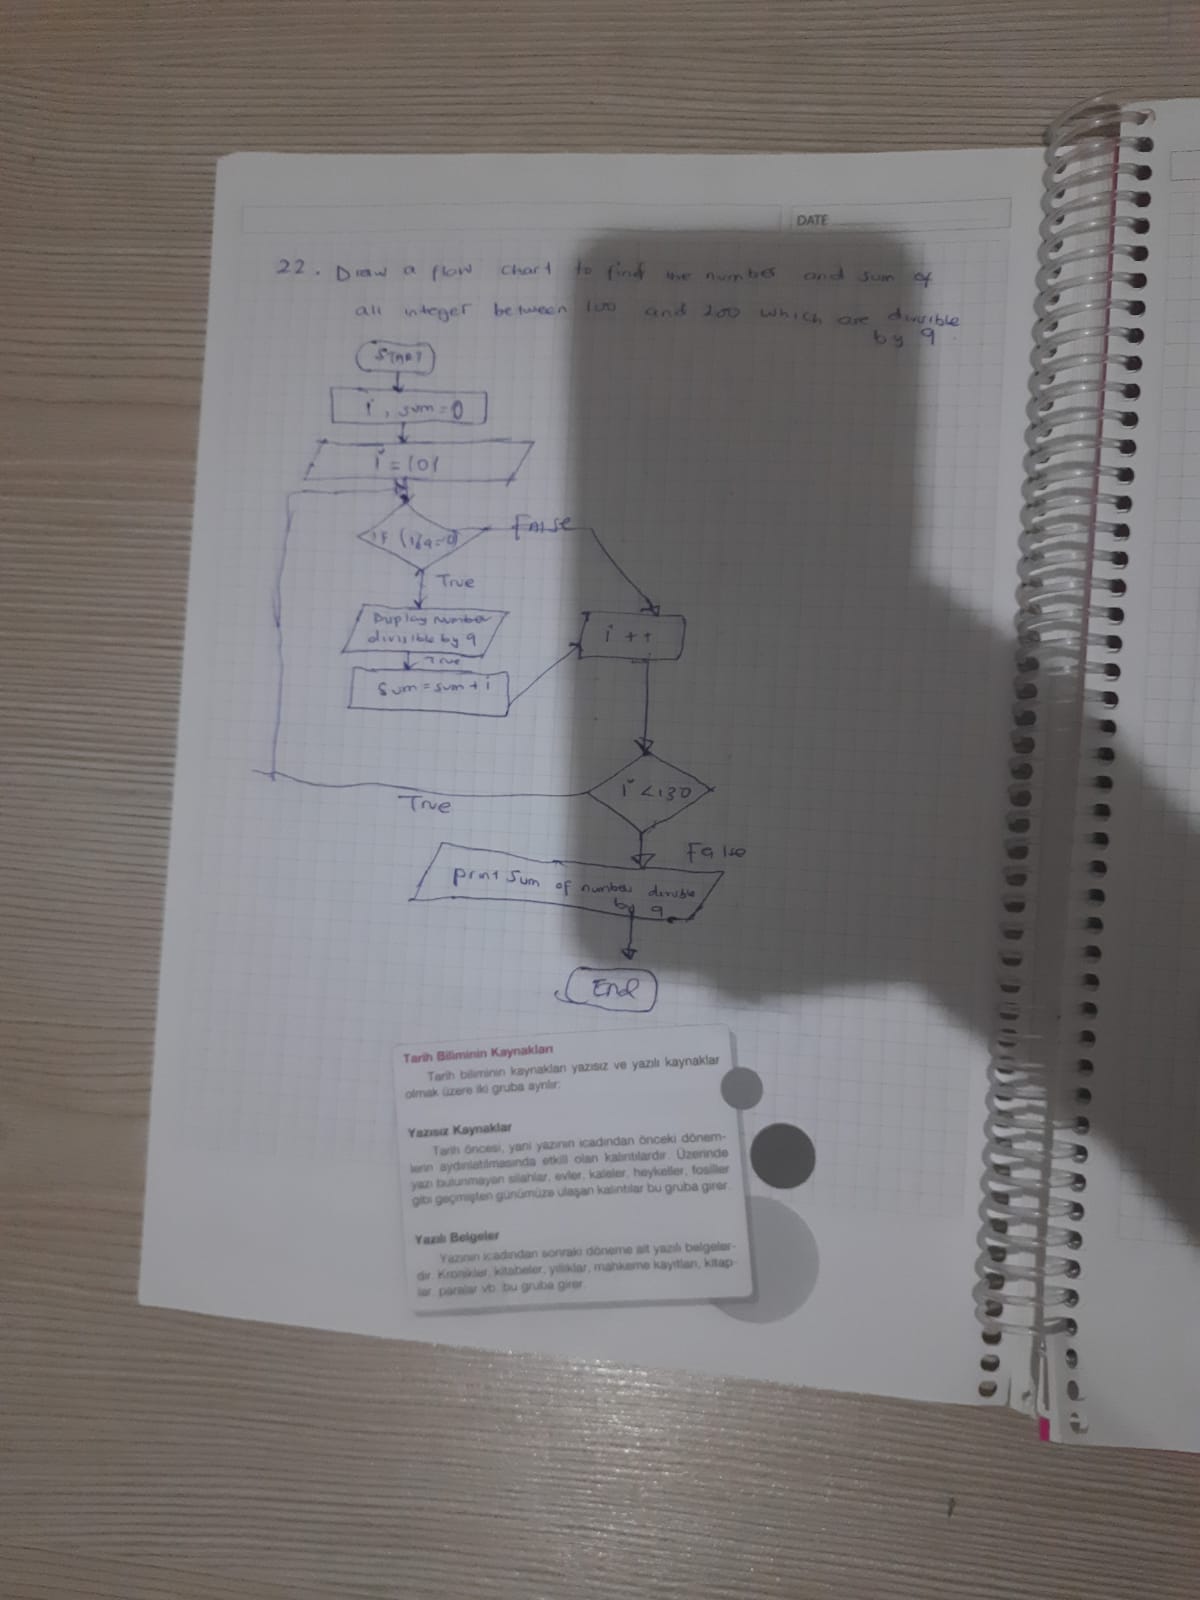 DATE
22. Draw a flow chart to find the number and sum of
all integer between 100 and 200 which are divisible
by 9.
START
i, sum = 0
i = 101
IF (i%9=0)
False
True
Display number
divisible by 9
True
i ++
sum = sum + i
i < 130
True
False
print sum of number divisible
by 9
End
Tarih Biliminin Kaynakları
Tarih biliminin kaynakları yazısız ve yazılı kaynaklar
olmak üzere iki gruba ayrılır:
Yazısız Kaynaklar
Tarih öncesi, yani yazının icadından önceki dönem-
lerin aydınlatılmasında etkili olan kalıntılardır. Üzerinde
yazı bulunmayan silahlar, evler, kaleler, heykeller, fosiller
gibi geçmişten günümüze ulaşan kalıntılar bu gruba girer.
Yazılı Belgeler
Yazının icadından sonraki döneme ait yazılı belgeler-
dir. Kronikler, kitabeler, yıllıklar, mahkeme kayıtları, kitap-
lar, paralar vb. bu gruba girer.